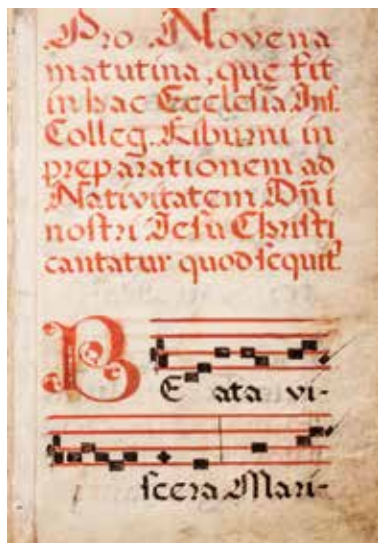 Pro Novena
matutina, que fit
in hac Ecclesia Ins.
Colleg. Liburni in
preparationem ad
Nativitatem Dñi
nostri Jesu Christi
cantatur quod sequit.
BEata vi-
scera Mari-